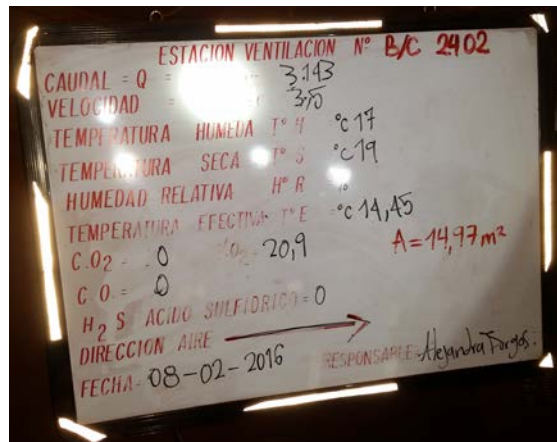 ESTACION VENTILACION Nº B/C 2402
CAUDAL = Q = 3.143
VELOCIDAD =
TEMPERATURA HUMEDA Tº H ºC 17
TEMPERATURA SECA Tº S ºC 19
HUMEDAD RELATIVA Hº R =
TEMPERATURA EFECTIVA TºE ºC 14,45
A = 14,97 m²
C.O2 = 0 O2 = 20,9
C.O. = 0
H2 S ACIDO SULFIDRICO = 0
DIRECCION AIRE
FECHA - 08-02-2016 RESPONSABLE: Alejandra